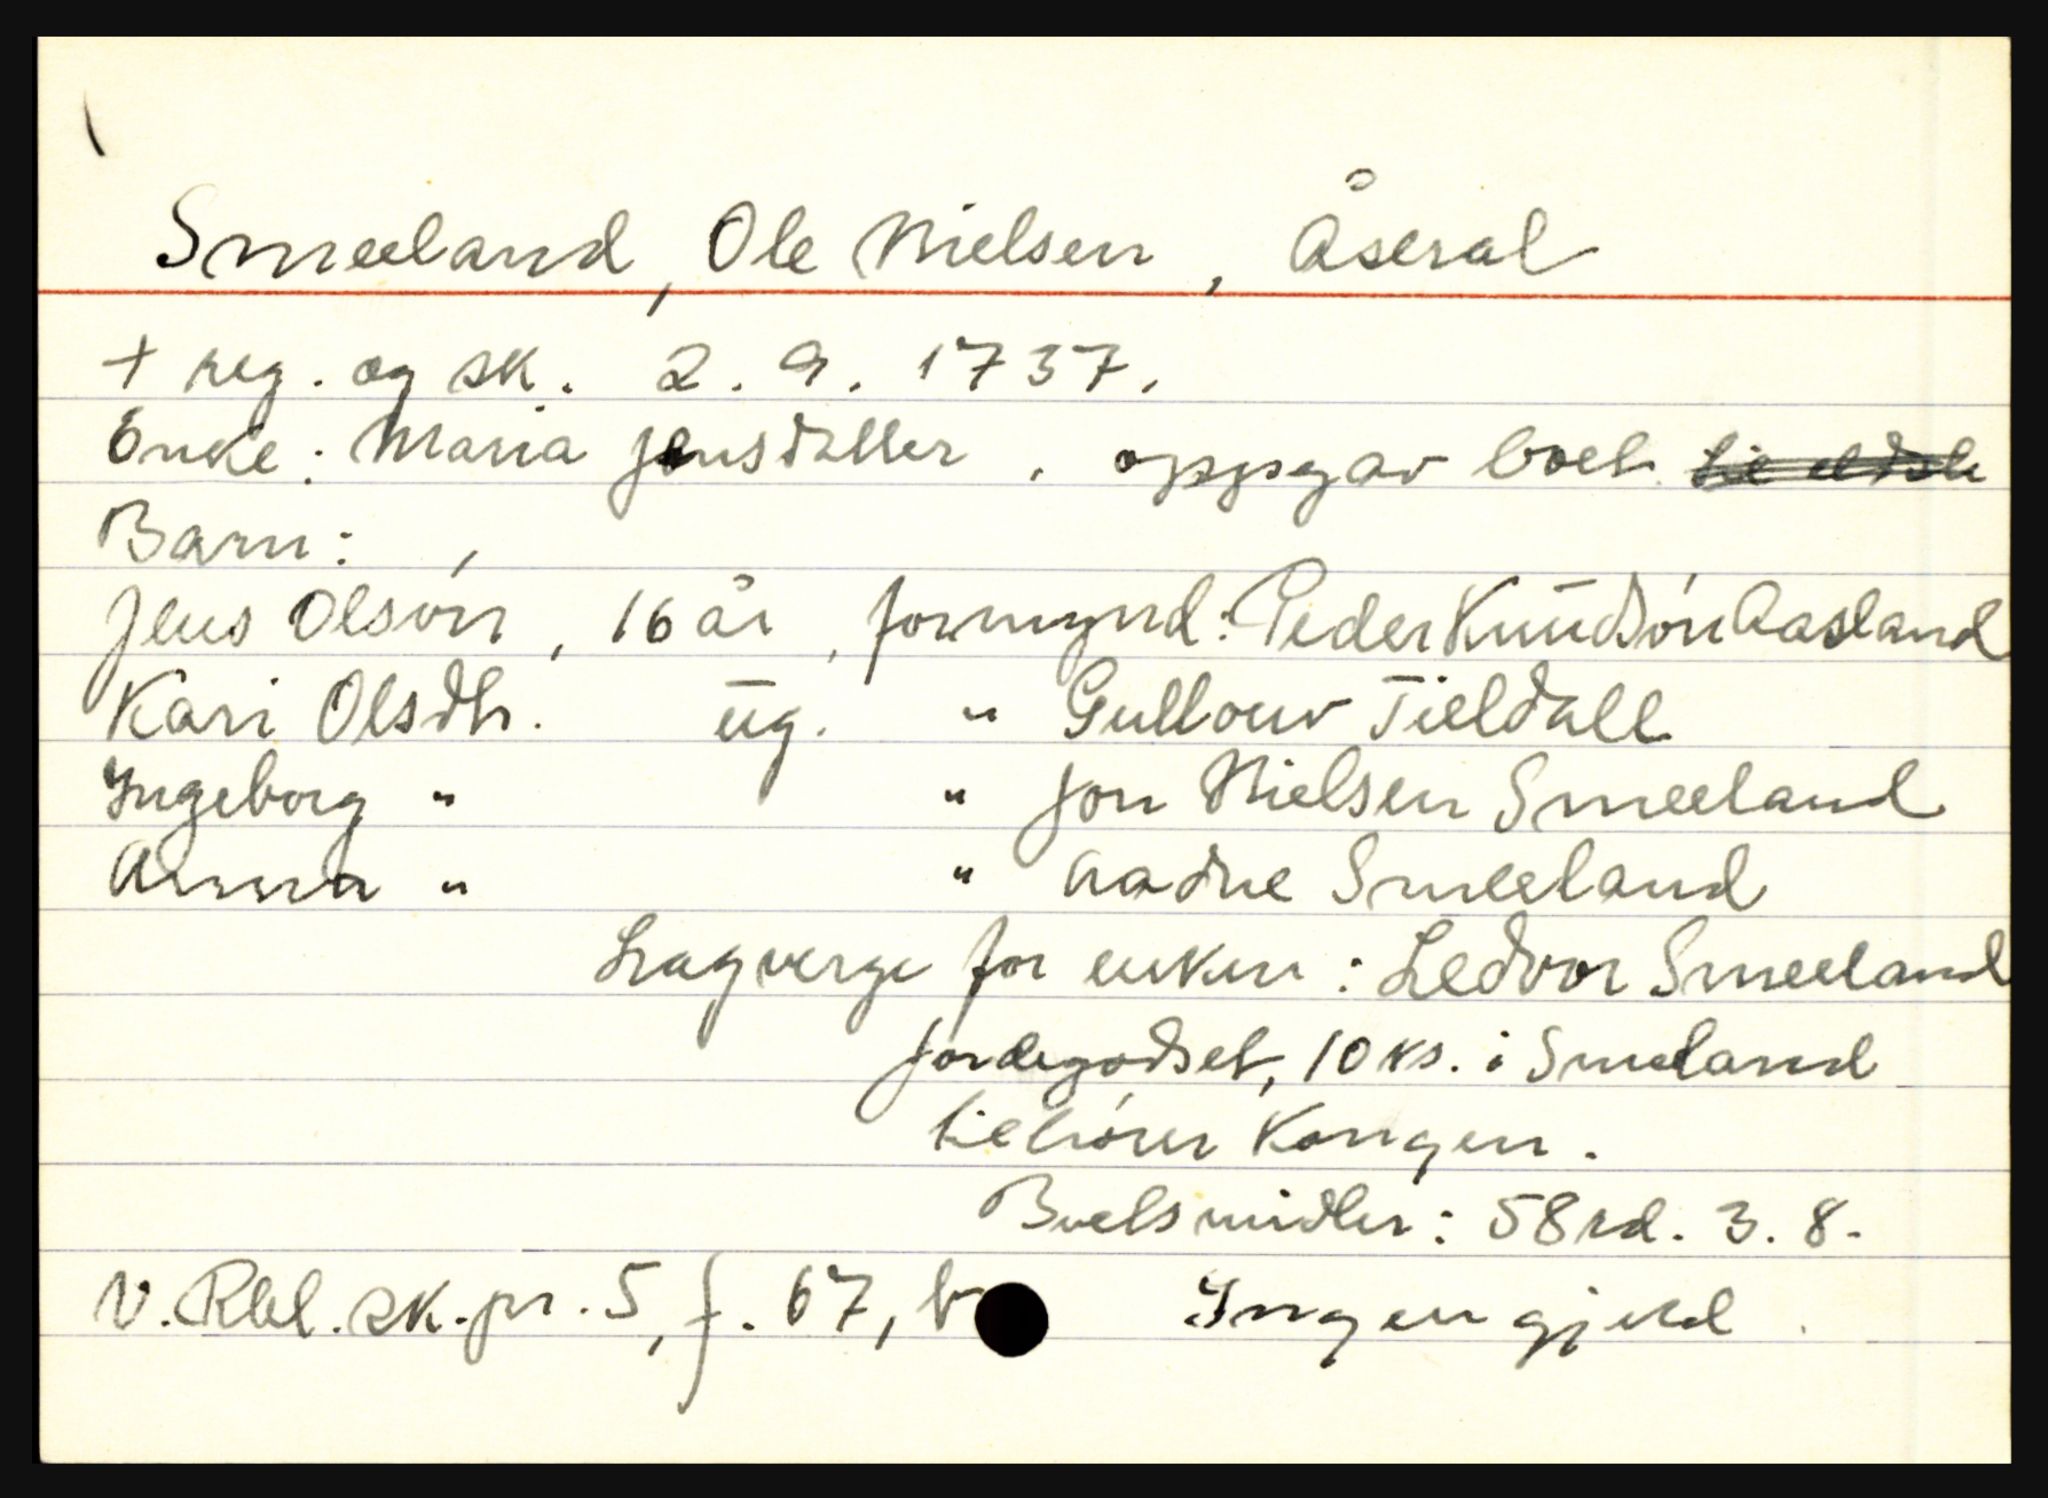 Smeeland, Ole Nielsen, Åseral
+ reg. og sk. 2. 9. 1737.
Enke: Maria Jensdatter. oppgav boet
Barn:
Jens Olsón, 16 år, formynd: Peder Knudsón Aasland
Kari Olsdtr. ug. " Guttouv Tieldall
Ingeborg " " Jon Nielsen Smeeland
Anna " " Aadne Smeeland
Lagverge for enken: Ledvor Smeeland
Jordegodset, 10 ks. i Smeland
tilhörer Kongen.
Boets midler: 58 rd. 3. 8.
V. Rbl. sk. pr. 5, f. 67, b Ingen gjeld.